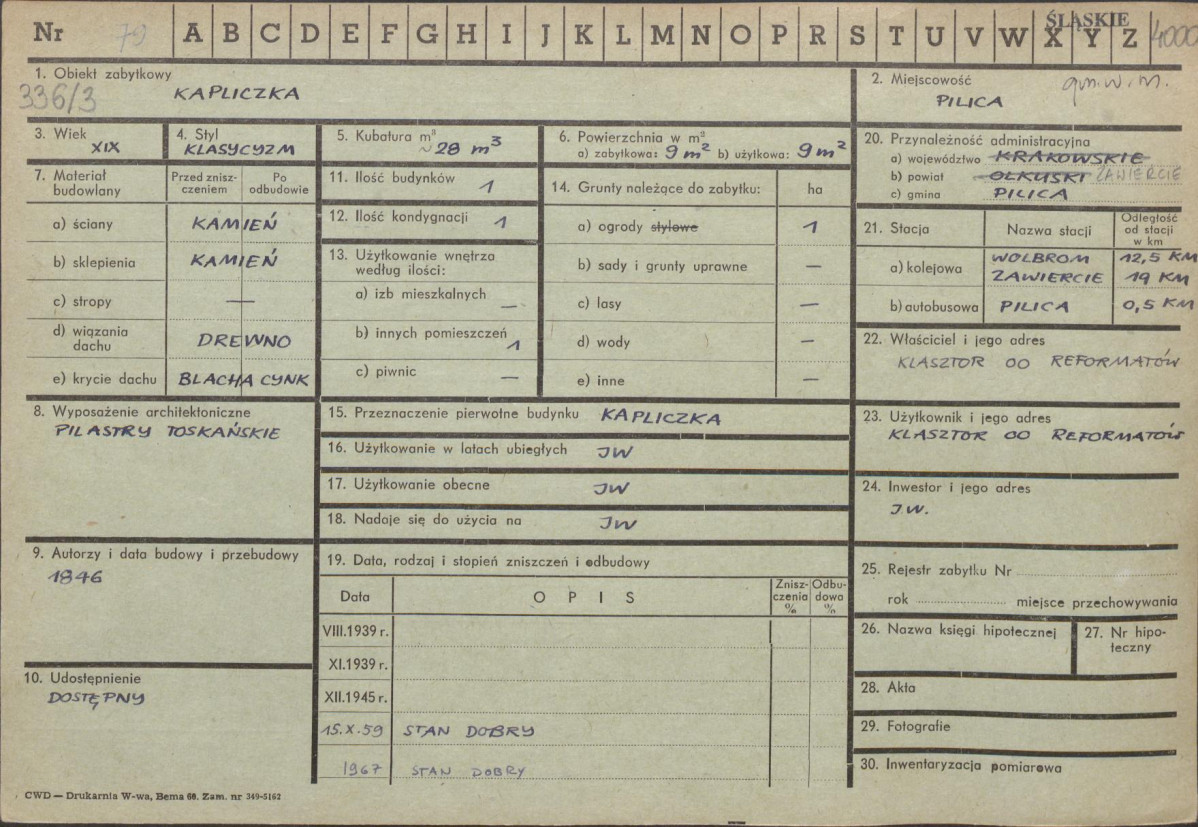 Nr 79 A B C D E F G H I J K L M N O P R S T U V W X Y Z ŚLĄSKIE 4000
1. Obiekt zabytkowy
336/3 KAPLICZKA
2. Miejscowość gm. w. m.
PILICA
3. Wiek
XIX
4. Styl
KLASYCYZM
5. Kubatura m³
~ 28 m³
6. Powierzchnia w m²
a) zabytkowa: 9 m² b) użytkowa: 9 m²
20. Przynależność administracyjna
a) województwo KRAKOWSKIE
b) powiat OLKUSKI ZAWIERCIE
c) gmina PILICA
7. Materiał budowlany
Przed znisz-czeniem
Po odbudowie
a) ściany KAMIEŃ
b) sklepienia KAMIEŃ
c) stropy —
d) wiązania dachu DREWNO
e) krycie dachu BLACHA CYNK
11. Ilość budynków 1
12. Ilość kondygnacji 1
13. Użytkowanie wnętrza
według ilości:
a) izb mieszkalnych —
b) innych pomieszczeń 1
c) piwnic —
14. Grunty należące do zabytku: ha
a) ogrody stylowe 1
b) sady i grunty uprawne —
c) lasy —
d) wody —
e) inne —
21. Stacja Nazwa stacji Odległość od stacji w km
a) kolejowa WOLBROM 12,5 KM
ZAWIERCIE 19 KM
b) autobusowa PILICA 0,5 KM
22. Właściciel i jego adres
KLASZTOR OO REFORMATÓW
8. Wyposażenie architektoniczne
PILASTRY TOSKAŃSKIE
15. Przeznaczenie pierwotne budynku KAPLICZKA
16. Użytkowanie w latach ubiegłych JW
17. Użytkowanie obecne JW
18. Nadaje się do użycia na JW
23. Użytkownik i jego adres
KLASZTOR OO REFORMATÓW
24. Inwestor i jego adres
JW.
9. Autorzy i data budowy i przebudowy
1846
10. Udostępnienie
DOSTĘPNY
19. Data, rodzaj i stopień zniszczeń i odbudowy
Data OPIS Znisz-czenia % Odbu-dowa %
VIII.1939 r.
XI.1939 r.
XII.1945 r.
15.X.59 STAN DOBRY
1967 STAN DOBRY
25. Rejestr zabytku Nr
rok miejsce przechowywania
26. Nazwa księgi hipotecznej
27. Nr hipo-
teczny
28. Akta
29. Fotografie
30. Inwentaryzacja pomiarowa
CWD — Drukarnia W-wa, Bema 60. Zam. nr 349-5162